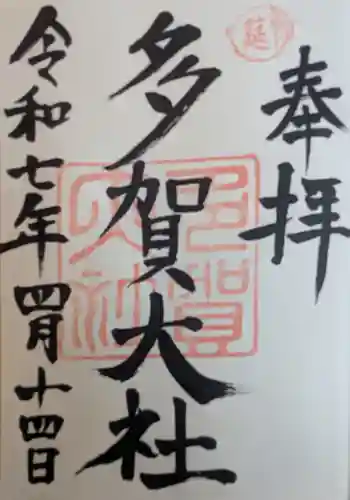 奉拝
延
多賀大社
多賀大社
令和七年四月十四日